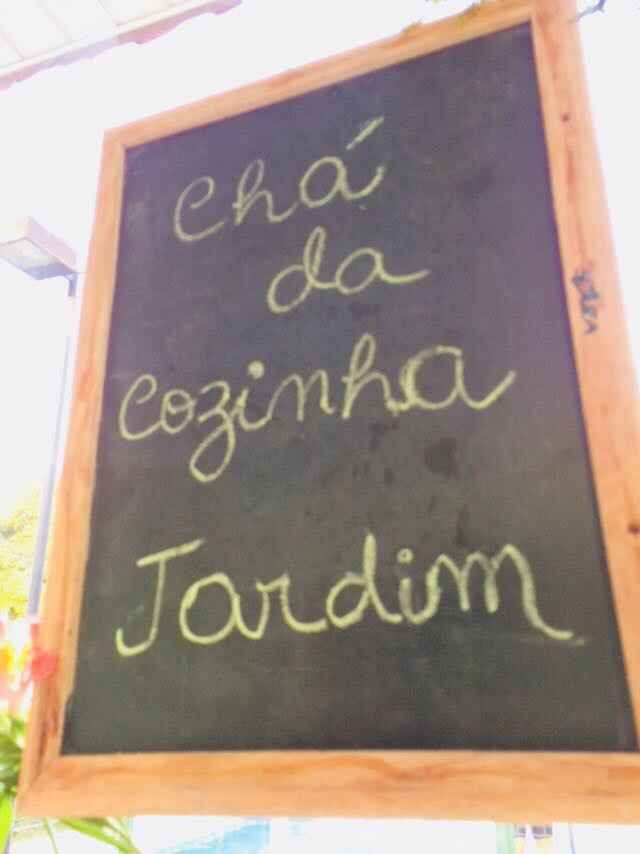 Chá
da
Cozinha
Jardim